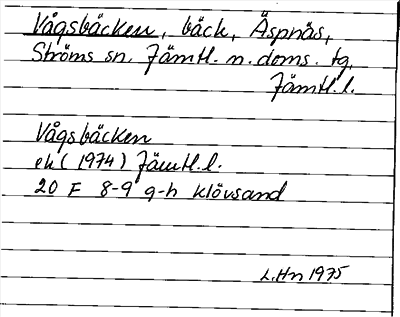 Vågsbäcken, bäck, Äspnäs,
Ströms sn. Jämtl. n. doms. tg.
Jämtl. l.
Vågsbäcken
ek (1974) Jämtl. l.
20 F 8-9 g-h Klövsand
L.Hn 1975